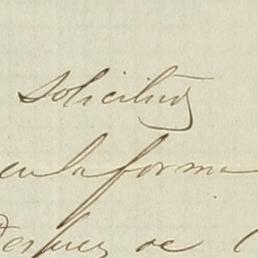 Solicitud
en la forma
Despues de